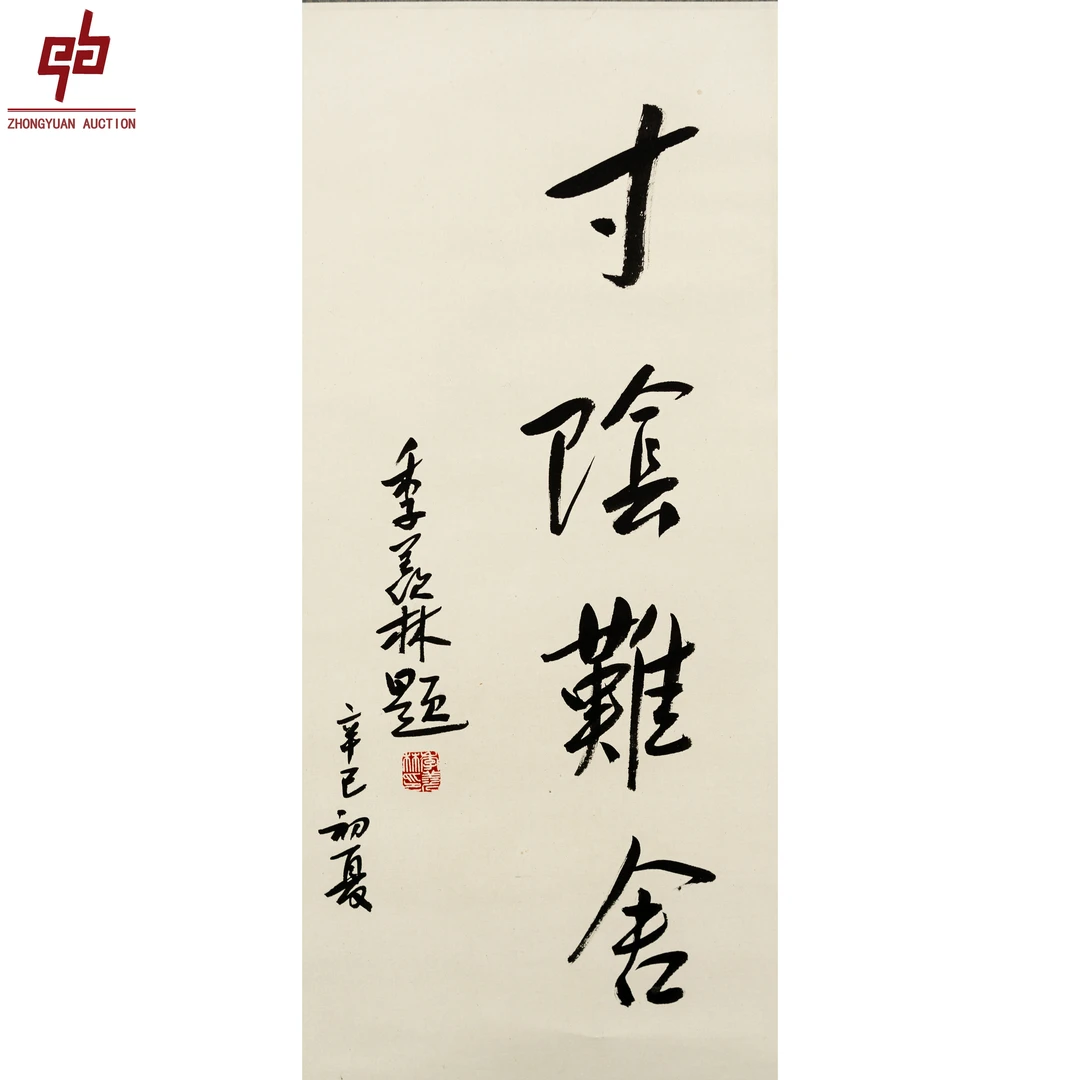 ZHONGYUAN AUCTION
寸陰難舍
季羡林題
辛巳初夏
季羡林印